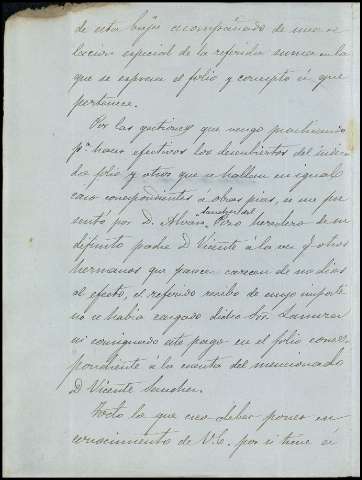 de esta baja acompañado de una re
lacion especial de la referida suma en la
que se espresa el folio y concepto á que
pertenece.
Por las gestiones que vengo practicando
pª hacer efectivos los descubiertos del indica
do folio y otros que se hallan en igual
caso correspondientes a obras pias, se me pre
sentó por D. Alvaro Sanchez del Pozo heredero de su
difunto padre D Vicente á la vez q. otros
hermanos que parece carecen de
al efecto, el referido recibo de cuyo importe
no se habia cargado dicho Sor.
ni consignado este pago en el folio corres
pondiente á la cuenta del mencionado
D Vicente Sanchez.
Todo lo que creo deber poner en
conocimiento de V.E. por si tiene á